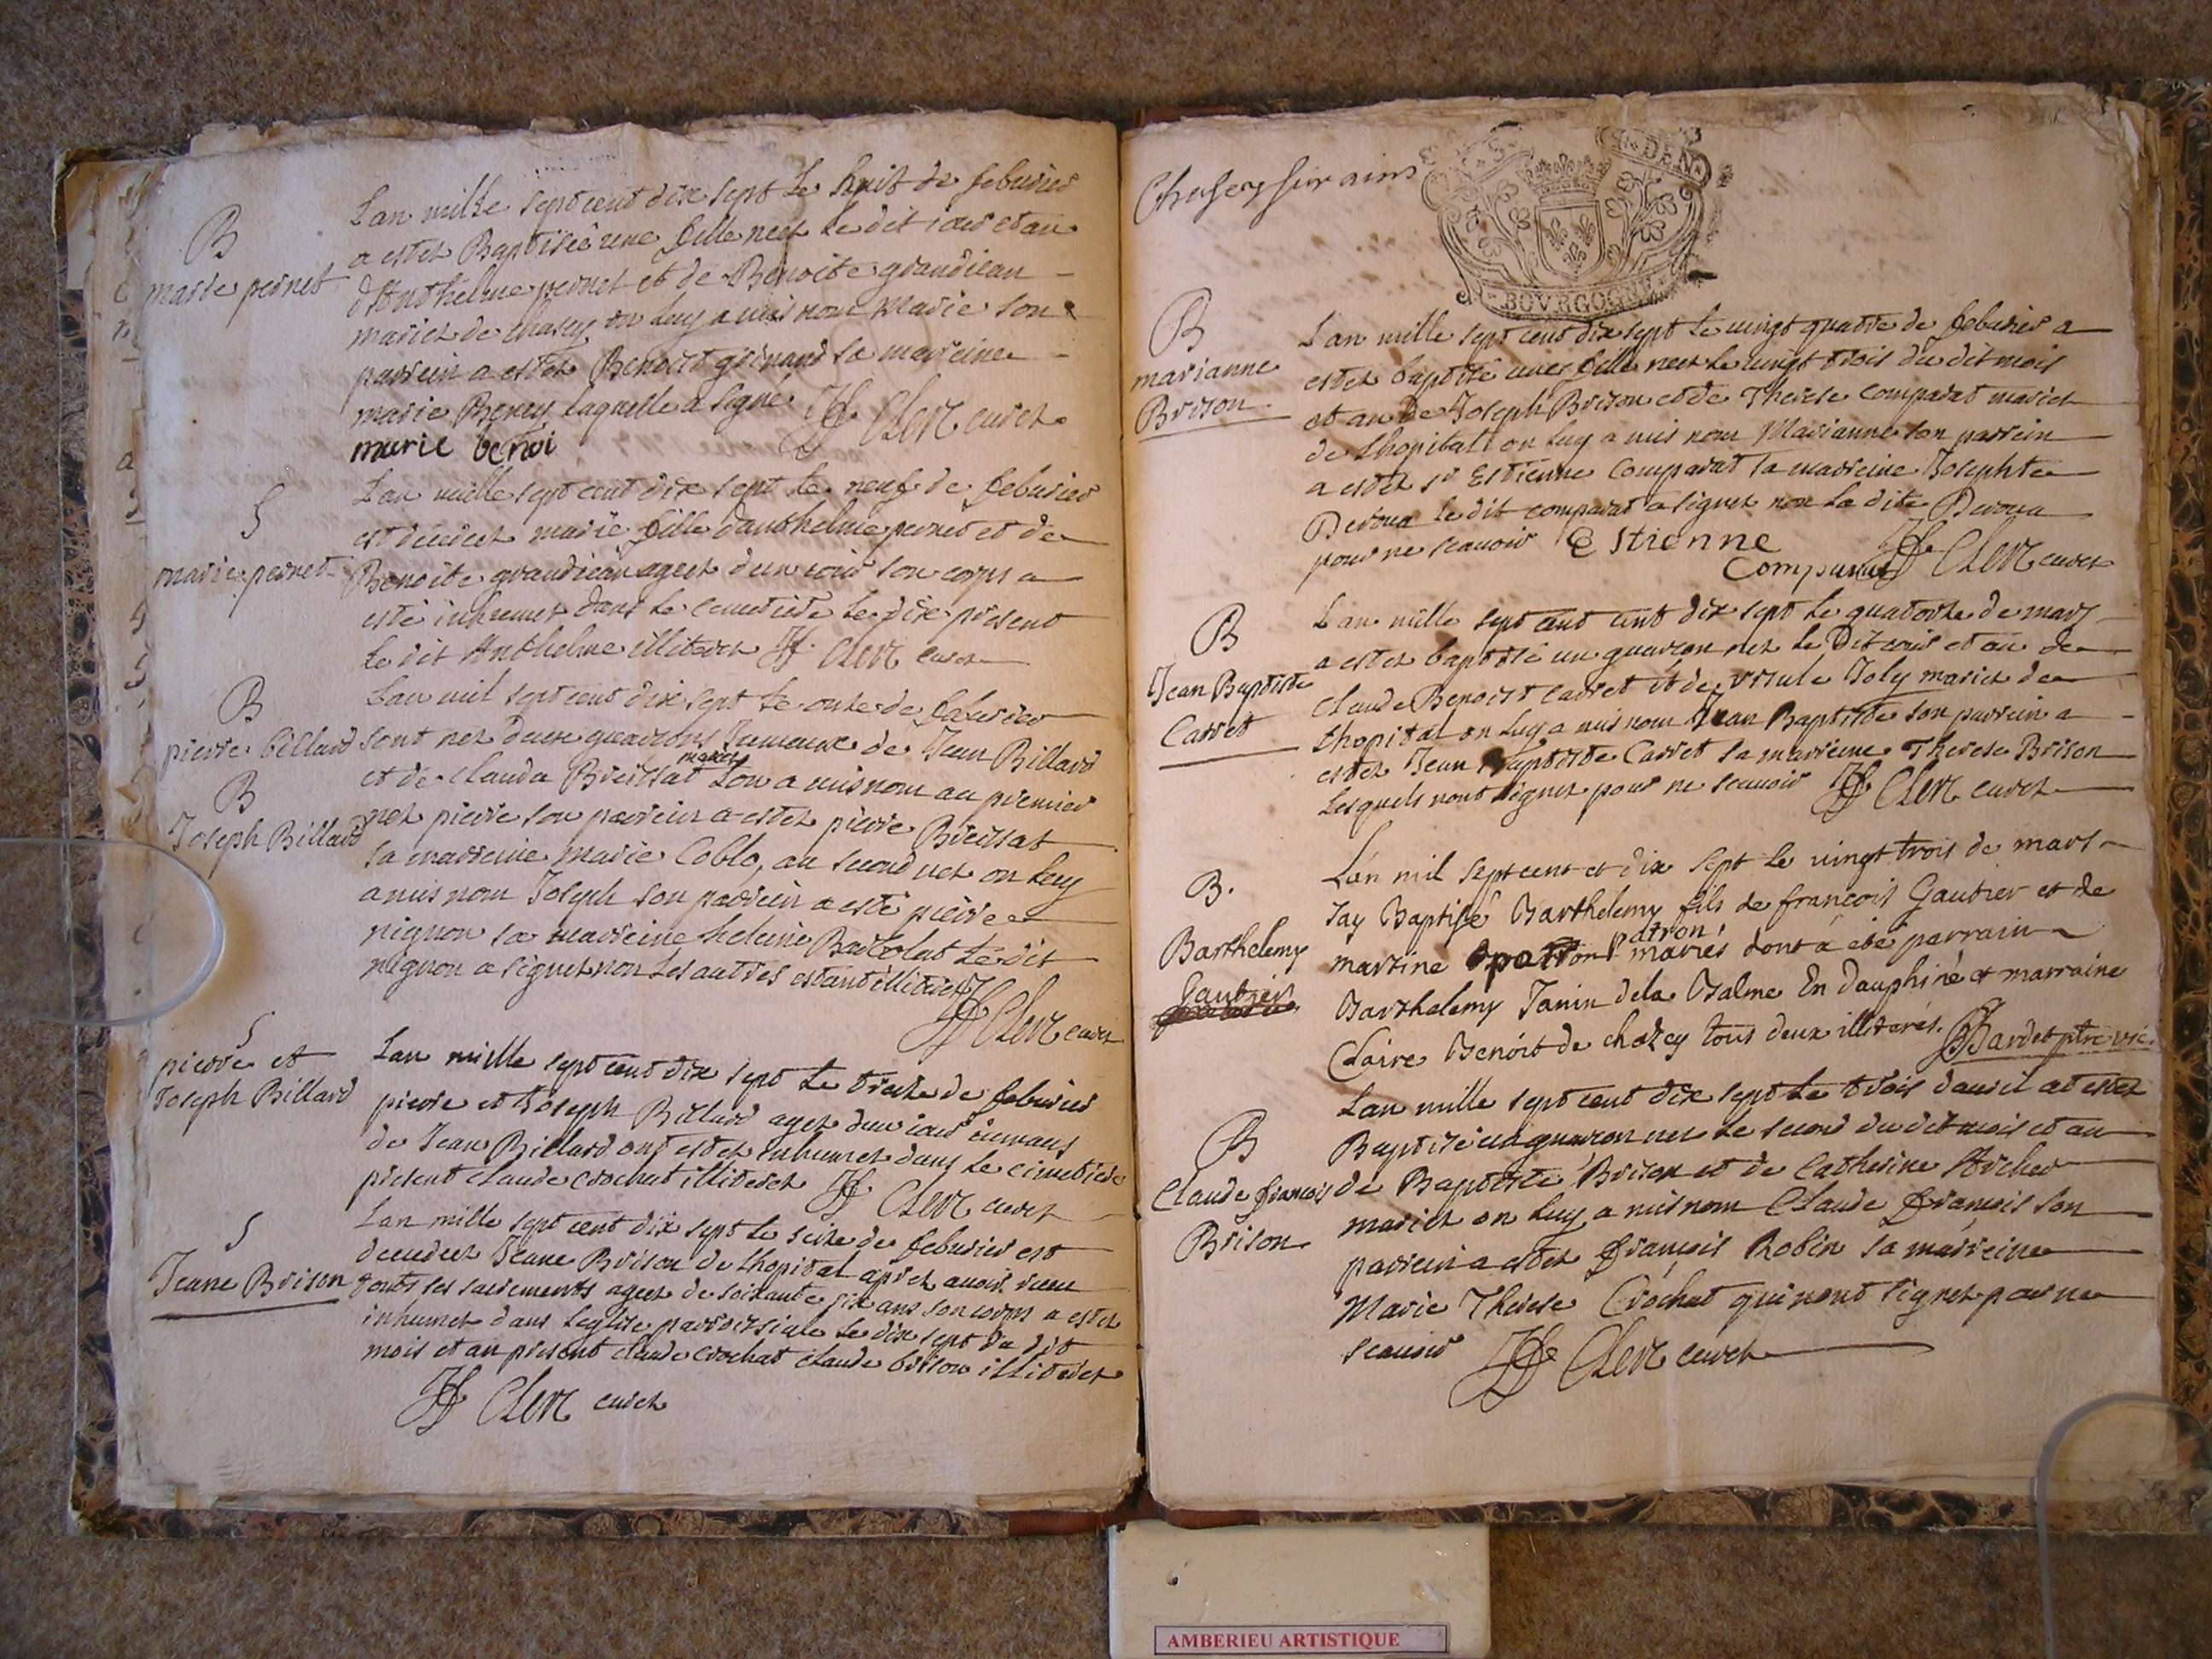 B
marie pernet
Lan mille sept cent dix sept Le huit de febvrier
a estez Baptisée une fille neez Le dit iour et an
d'Anthelme pernet et de Benoite grandiean
mariez de chasey on Luy a mis nom Marie son
parrein a estez Benoist grinand sa marreine
marie Beney laquelle a signé JF Clerc curez
marie benoi
S
marie pernet
Lan mille sept cent dix sept le neuf de febvrier
est décédéez marie fille danthelme pernet et de
Benoite grandiean ageez d'un iour son corps a
esté inhumez dans Le cemetiere Le dix présent
Le dit Anthelme illiterez JF Clerc curez
B
pierre billard
B
Joseph Billard
Lan mil sept cent dix sept Le onze de febvrier
sont nez deux guarcons Jumeaux de Jean Billard
et de Clauda Breissat mariez Lon a mis nom au premier
nez pierre son parrein a estez pierre Breissat
sa marreine marie Coblo, au second nez on Luy
a mis nom Joseph son parrein a esté pierre
pignon sa marreine heleine Barbolat Le dit
pignon a signez non Les autres estant illiterez
JF Clerc curez
S
pierre et
Joseph Billard
Lan mille sept cent dix sept Le treize de febvrier
pierre et Joseph Billard agez dun iour iumeaux
de Jean Billard ont estez enhumez dans Le cimetiere
présent Claude Crochat illiterez JF Clerc curez
S
Jeane Brison
Lan mille sept cent dix sept Le seize de febvrier est
decedeez Jeane Brison de Lhopital aprez avoir receu
touts ses sacrements ageez de soixante dix ans son corps a estez
inhumez dans Leglise parroissiale Le dix sept du dit
mois et an présent claude crochat claude brison illiterez
JF Clerc curez
Chasey sur ains
G. DEN.
BOVRGOGNE
B
marianne
Brison
Lan mille sept cent dix sept Le vingt quatre de febvrier a
estez baptisé une fille neez Le vingt trois du dit mois
et an de Joseph Brison et de Therese Comparat mariez
de Lhopital on Luy a mis nom Marianne son parrein
a estez sr Estienne Comparat sa marreine Josephte
Deroua Le dit comparat a signez non La dite Deroua
pour ne scauoir Estienne
Comparat JF Clerc curez
B
Jean Baptiste
Carret
Lan mille sept cent cent dix sept Le quatorze de mars
a estez baptisé un guarcon nez Le Dit iour et an de
Claude Benoist Carret et de Ursule Joly mariez de
Lhopital on Luy a mis nom Jean Baptiste son parrein a
estez Jean Baptiste Carret sa marreine Therese Brison
Lesquels nont signez pour ne scauoir JF Clerc curez
B.
Barthelemy
Gautier
Lán mil sept cent et dix sept Le vingt trois de mars
Jay Baptisé Barthelemy fils de francois Gautier et de
martine patron mariés dont a été parrain
Barthelemy Janin dela Balme En dauphiné et marraine
Claire Benoist de chazey tous deux illiterés. Bardet ptre vic.
B
Claude francois
Brison
Lan mille sept cent dix sept Le trois davril at estez
Baptisé un guarcon nez le second du dit mois et an
de Baptiste Brison et de Catherine Archer
mariez on Luy a mis nom Claude francois son
parrein a estez francois Robin sa marreine
Marie Therese Crochat qui nont signez pour ne
scauoir JF Clerc curez
AMBERIEU ARTISTIQUE